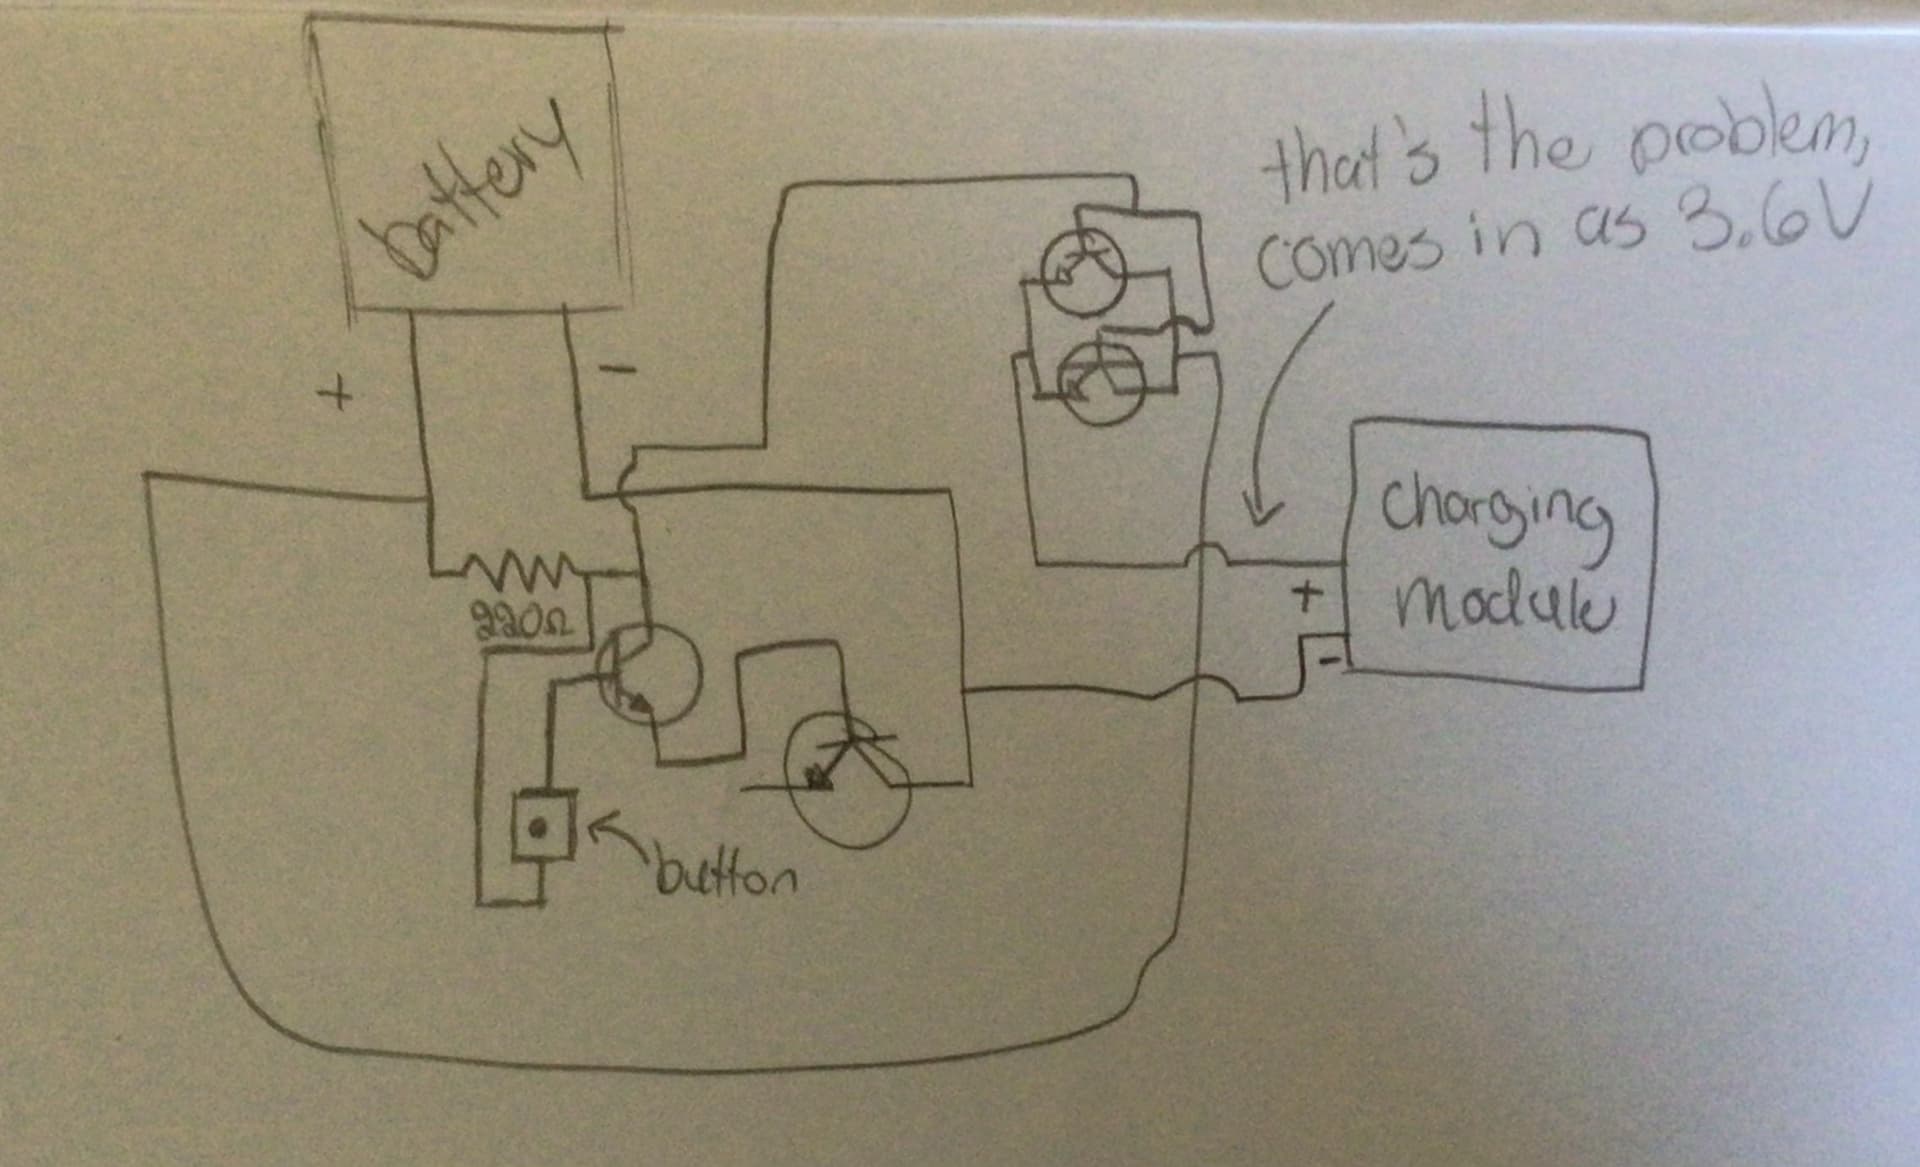 battery
that's the problem,
comes in as 3.6V
+
-
charging
module
220Ω
+
-
button